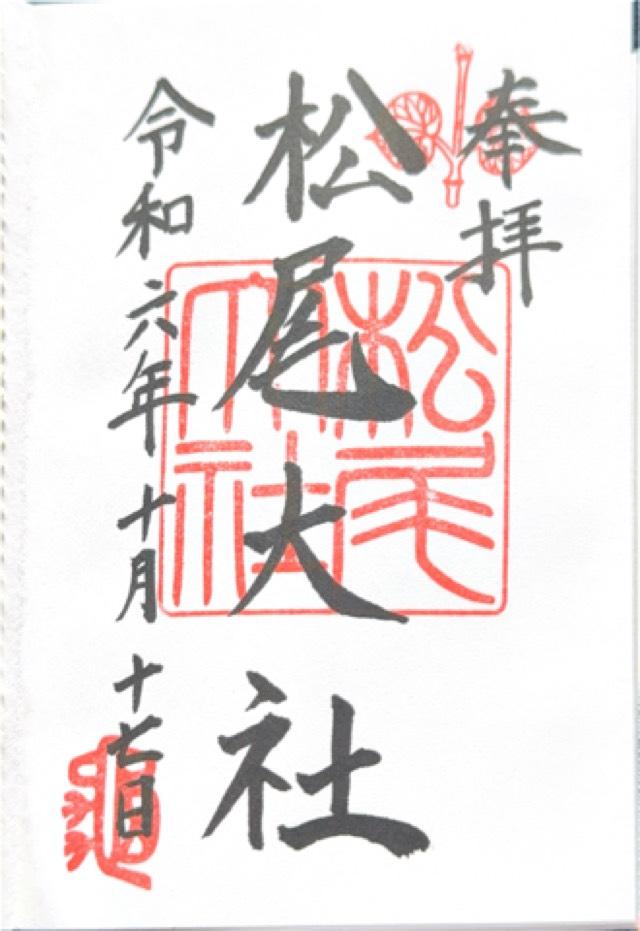 奉拝
松尾大社
令和六年十月十七日
松尾大社